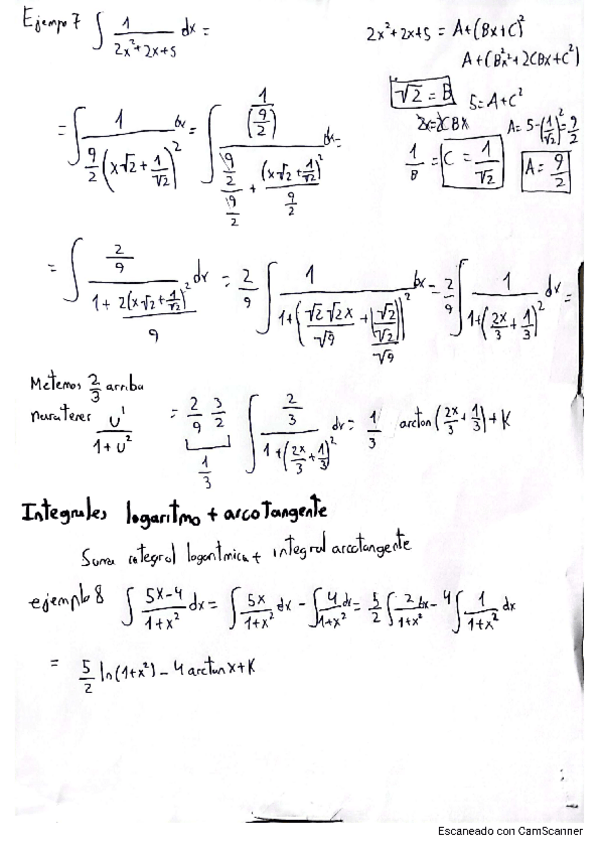 Ejempo 7 ∫ 1/(2x²+2x+5) dx =
2x²+2x+5 = A+(Bx+C)²
A+(B²x²+2CBx+C²)
√2 = B 5=A+C²
2x=2CBx A= 5-(1/√2)²=9/2
1/B = C = 1/√2 A= 9/2
= ∫ 1/(9/2 (x√2+1/√2)²) dx = ∫ (1/(9/2))/((9/2)/(9/2) + (x√2+1/√2)²/(9/2)) dx=
= ∫ (2/9)/(1+ 2(x√2+1/√2)²/9) dx = 2/9 ∫ 1/(1+(√2√2x/√9 + (√2/√2)/√9)²) dx= 2/9 ∫ 1/(1+(2x/3+1/3)²) dx =
Metemos 2/3 arriba
para tener u'/(1+u²)
= 2/9 3/2 ∫ (2/3)/(1+(2x/3+1/3)²) dx= 1/3 arctan(2x/3+1/3)+K
1/3
Integrales logaritmo + arcotangente
Suma integral logaritmica + integral arcotangente
ejemplo 8 ∫ (5x-4)/(1+x²) dx= ∫ 5x/(1+x²) dx - ∫ 4dx/(1+x²) = 5/2 ∫ 2x/(1+x²) - 4 ∫ 1/(1+x²) dx
= 5/2 ln(1+x²) - 4 arctan x+K
Escaneado con CamScanner